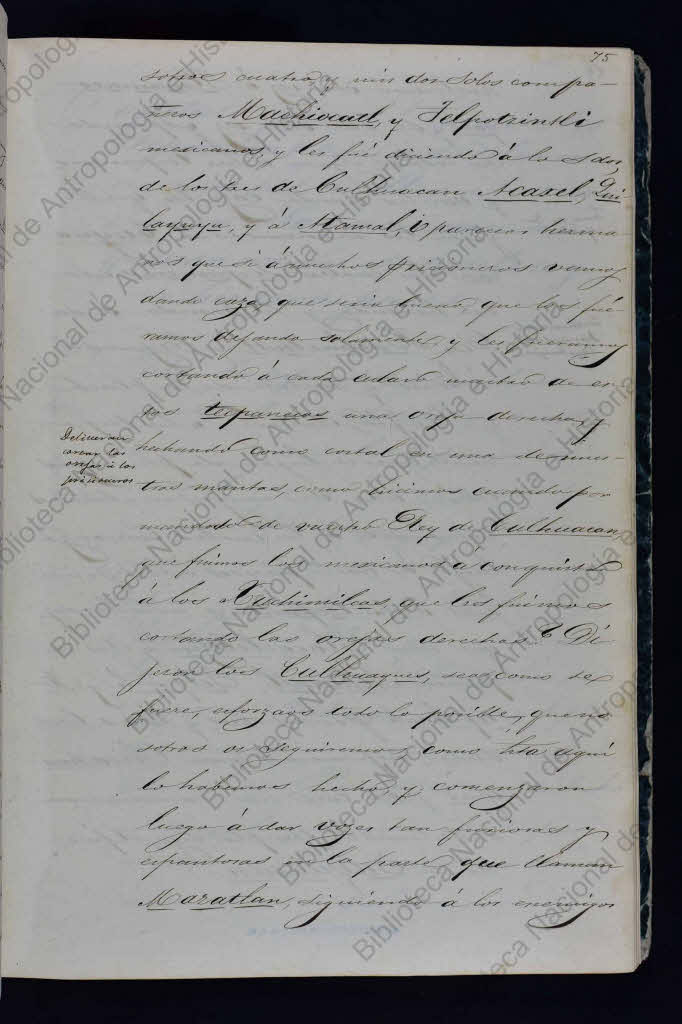 75
sotros cuatro y mis dos solos compa-
ñeros Machiocatl, y Telpotzintli
mexicanos, y les fué diciendo á los dos,
de los tres de Culhuacan Acaxel, Qui-
layuyu, y á Atamal, ¿pareceos herma-
nos que si á muchos prisioneros vamos
dando caza, que seria bueno, que los fué-
ramos dejando solamente, y les fueramos
cortando á cada cularo macho de es-
tos tecpanecas una oreja derecha, y
hechando como costal en una de nues-
tras mantas, como hicimos cuando por
mandado de vuestro Rey de Culhuacan
que fuimos los mexicanos á conquistar
á los Xuchimilcas, que les fuimos
cortando las orejas derechas? Di-
jeron los Culhuaques, sea como se
fuere, esforzaos todo lo posible, que no-
sotros os seguiremos como hta aquí
lo habemos hecho, y comenzaron
luego á dar vozes tan furiosas y
espantosas en la parte que llaman
Mazatlan, siguiendo á los enemigos
Deliveran
cortar las
orejas á los
prisioneros
Biblioteca Nacional de Antropología e Historia